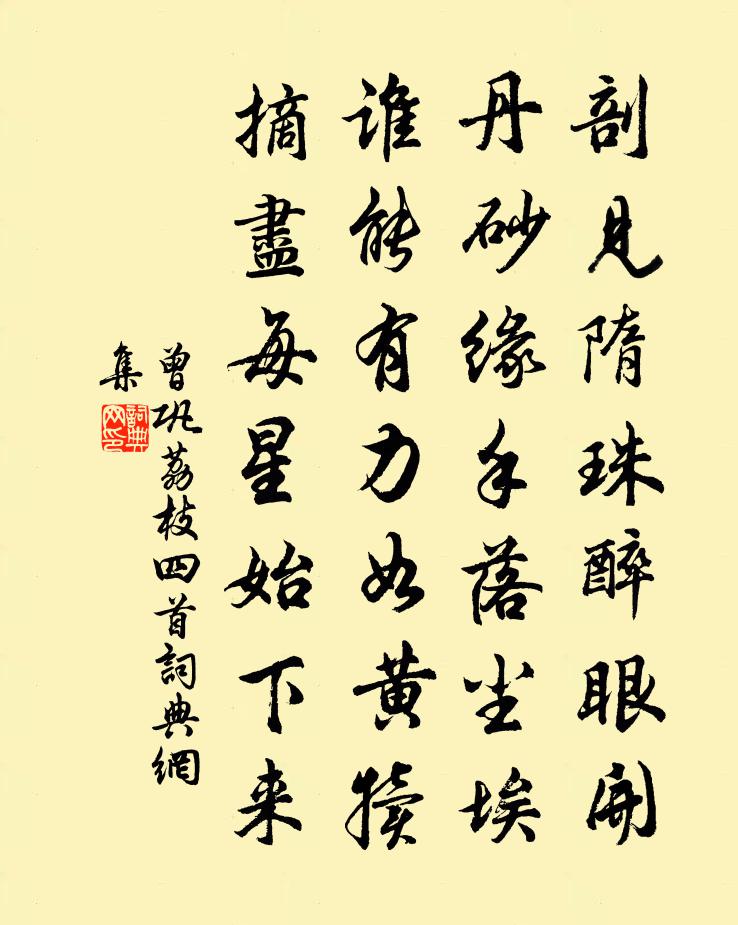 剖見隋珠醉眼開
丹砂緣手落尘埃
誰能有力如黄犢
摘盡每星始下来
曾巩荔枝四首詞典網
集
詞典网印